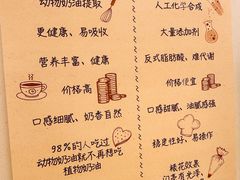 动物奶油提取
更健康、易吸收
营养丰富、健康
价格高
口感细腻、奶香自然
98%的人吃过
动物奶油就不再想吃
植物奶油
人工化学合成
大量添加剂
反式脂肪酸、难代谢
价格便宜
口感甜腻、油腻感强
稳定性好、易操作
裱花效果